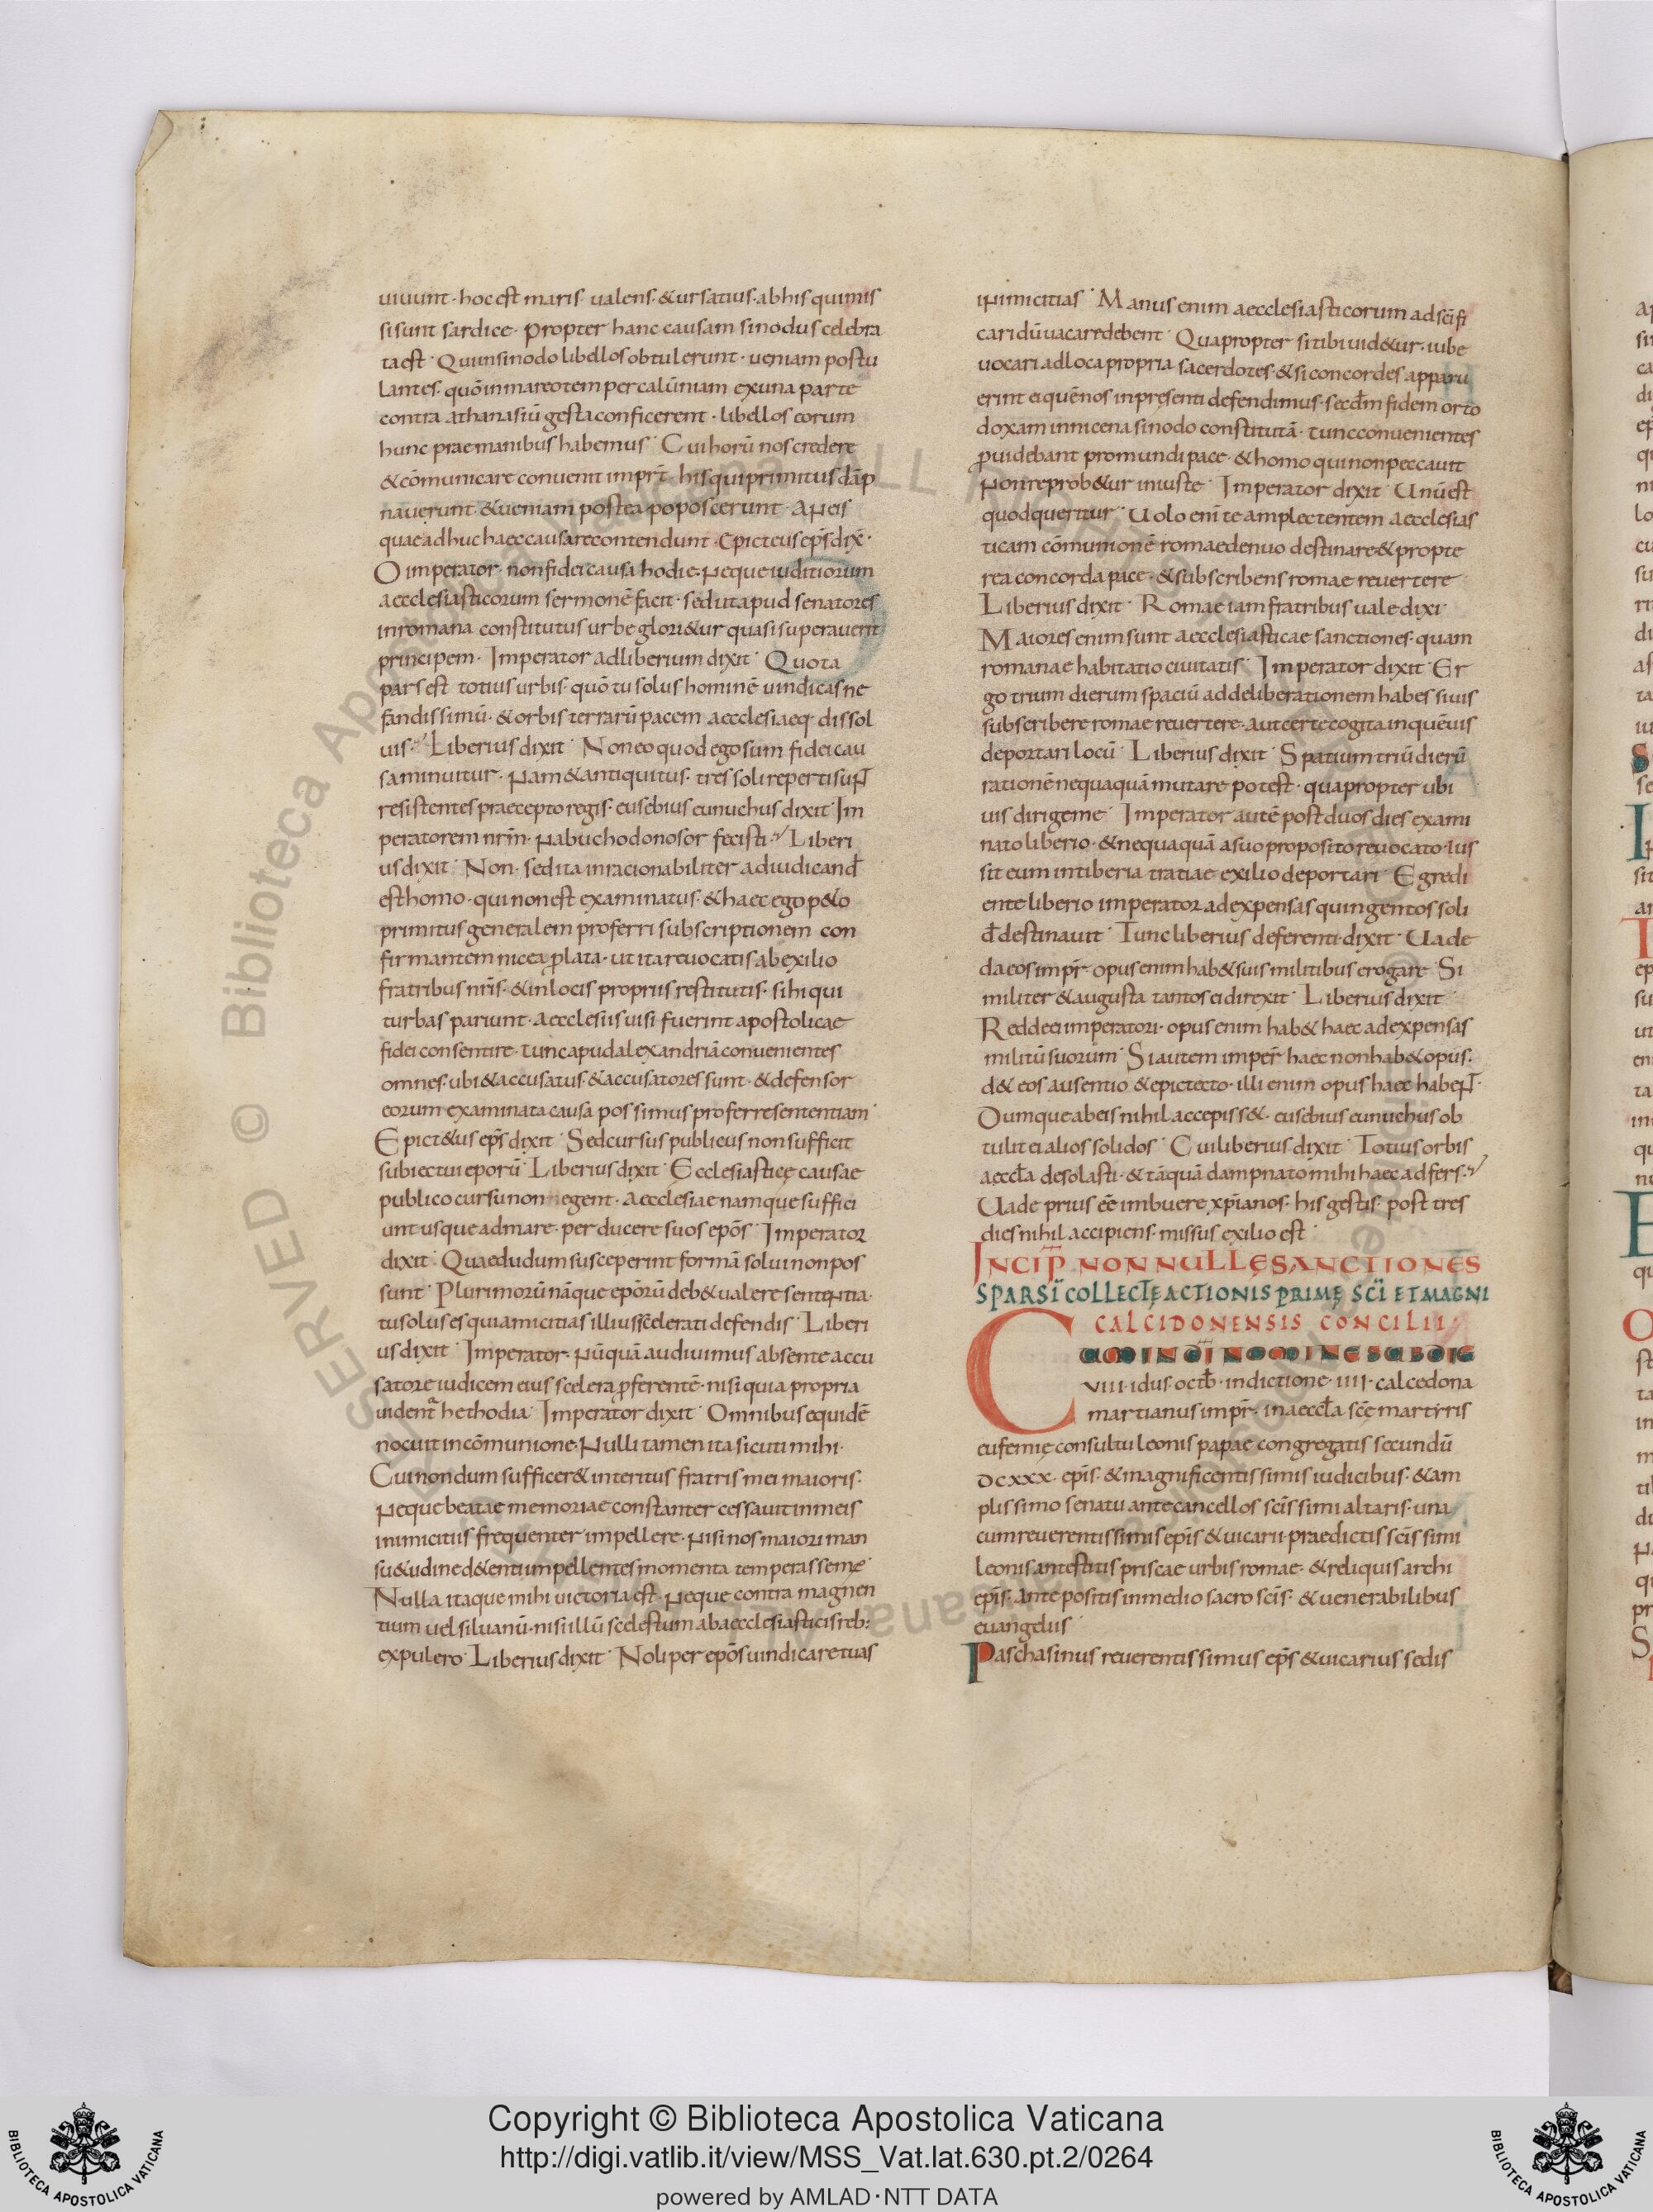 uiuunt· hoc est maris· ualens· &ursatius· abhis quimis
sisunt sardice· propter hanc causam sinodus celebra
ta est· Quiinsinodo libellos obtulerunt· ueniam postu
lantes· quō inmareotem per calūniam ex una parte
contra athanasiū gesta conficerent· libellos eorum
hunc prae manibus habemus· Cui horū nos credere
&cōmunicare conuenit impr̄t· his qui primitus dāp
nauerunt· &ueniam postea poposcerunt· aneis
quaeadhuc haec causa recontendunt· Epicteus ep̄s dix̄·
O imperator· non fidei causa hodie· neque iuditiorum
aecclesiasticorum sermonē facit· sed ut apud senatores
inromana constitutus urbe glori&ur quasi superauerit
principem· Imperator adliberium dixit· Quota
pars est totius urbis· quō tu solus hominē uindicas ne
fandissimū· &orbis terrarū pacem aecclesiaeq· dissol
uis· Liberius dixit· Non eo quod ego sum fidei cau
sa minuitur· Nam &antiquitus· tres soli reperti suNT
resistentes praecepto regis· eusebius eunuchus dixit Im
peratorem nr̄m· Nabuchodonosor fecisti· Liberi
us dixit· Non· sed ita inracionabiliter adiudicand̄
est homo· qui non est examinatus· &haec ego p&o
primitus generalem proferri subscriptionem con
firmantem nicea p̄lata· ut ita reuocatis ab exilio
fratribus nr̄is· &in locis propriis restitutis· si hi qui
turbas pariunt· aecclesiis uisi fuerint apostolicae
fidei consentire· tunc apud alexandriā conuenientes
omnes· ubi &accusatus· &accusatores sunt· &defensor
eorum examinata causā possimus proferre sententiam·
Epict&us ep̄s dixit· Sed cursus publicus non sufficit
subiectui eporū· Liberius dixit· Ecclesiasticę causae
publico cursu non egent· aecclesiae namque suffici
unt usque ad mare· per ducere suos epōs· Imperator
dixit· Quae dudum susceperint formā solui non pos
sunt· Plurimorū nāque epōrū deb& ualere sententia·
tu solus es qui amicitias illius scelerati defendis· Liberi
us dixit· Imperator· Nūquā audiuimus absente accu
satore iudicem eius scelera p̄ferentē· nisi quia propria
uident hethodia· Imperator dixit· Omnibus equidē
nocuit incōmunione· Nulli tamen ita sicuti mihi·
Cui nondum sufficer& interitus fratris mei maioris·
Neque beatae memoriae constanter cessauit inmeis
inimicitiis frequenter impellere· Nisi nos maiori man
su&udine d&entium pellentes momenta temperassemę·
Nulla itaque mihi uictoria est· Neque contra magnen
tium uel siluanū· nisi illū scelestum ab aecclesiasticis reb;
expulero· Liberius dixit· Noli per epōs uindicare tuas
inimicitias· Manus enim aecclesiasticorum ad scīfi
cari dū uacare debent· Quapropter si tibi uid&ur· iube
uocari ad loca propria sacerdotes· &si concordes apparu
erint ei quē nos inpresenti defendimus· secd̄m fidem orto
doxam innicena sinodo constitutā· tunc conuenientes
p̄uidebant pro mundi pace· &homo qui non peccauit
Non reprob&ur iniuste· Imperator dixit· Unū est
quod queritur· Uolo enī te amplectentem aecclesias
ticam cōmunionē romae denuo destinare· &propte
rea concorda pace· &subscribens romae reuertere·
Liberius dixit· Romae iam fratribus uale dixi·
Maiores enim sunt aecclesiasticae sanctiones· quam
romanae habitatio ciuitatis· Imperator dixit· Er
go trium dierum spaciū ad deliberationem habes siuis
subscribere romae reuertere· aut certe cogita in quē uis
deportari locū· Liberius dixit· Spatium triū dierū
rationē nequaquā mutare potest· quapropter ubi
uis dirige me· Imperator autē post duos dies exami
nato liberio· &nequaquā a suo proposito reuocato· ius
sit eum intiberia tratiae exilio deportari· Egredi
ente liberio imperator ad expensas quingentos soli
d̄ destinauit· Tunc liberius deferenti dixit· Uade
da eos impr̄· opus enim hab& suis militibus erogare· Si
militer &augusta tantos ei direxit· Liberius dixit·
Redde ei imperatori· opus enim hab& haec ad expensas
militū suorum· Si autem imper̄ haec non hab& opus·
d& eos ausentio &epictecto· illi enim opus haec habeNT·
Dumque ab eis nihil accepiss&· eusebius eunuchus ob
tulit ei alios solidos· Cui liberius dixit· Totius orbis
aeccl̄a desolasti· &tāquā dampnato mihi haec adfers·
Uade prius eē imbuere xp̄ianos· his gestis· post tres
dies nihil accipiens· missus exilio est·
INCIP̄ NONNULLĘ SANCTIONES
SPARSĪ COLLECTĘ ACTIONIS PRIMĘ SC̄I ET MAGNI
CALCIDONENSIS CONCILII·
CUM IN DĪ NOMINE SUB DIE
VIII· idus· octb̄· indictione· IIII· calcedona
martianus impr̄· in aeccl̄a scē martiris
eufemię consultu leonis papae congregatis secundū
DCXXX· ep̄is· &magnificentissimis iudicibus· &am
plissimo senatu ante cancellos scīssimi altaris· una
cum reuerentissimis ep̄is &uicarii· praedictis scīssimi
leonis antestitis priscae urbis romae· &reliquis archi
ep̄is· ante positis in medio sacro scīs· &uenerabilibus
euangeliis·
Paschasinus reuerentissimus ep̄s &uicarius sedis
Copyright © Biblioteca Apostolica Vaticana
http://digi.vatlib.it/view/MSS_Vat.lat.630.pt.2/0264
powered by AMLAD·NTT DATA
BIBLIOTECA APOSTOLICA VATICANA
BIBLIOTECA APOSTOLICA VATICANA